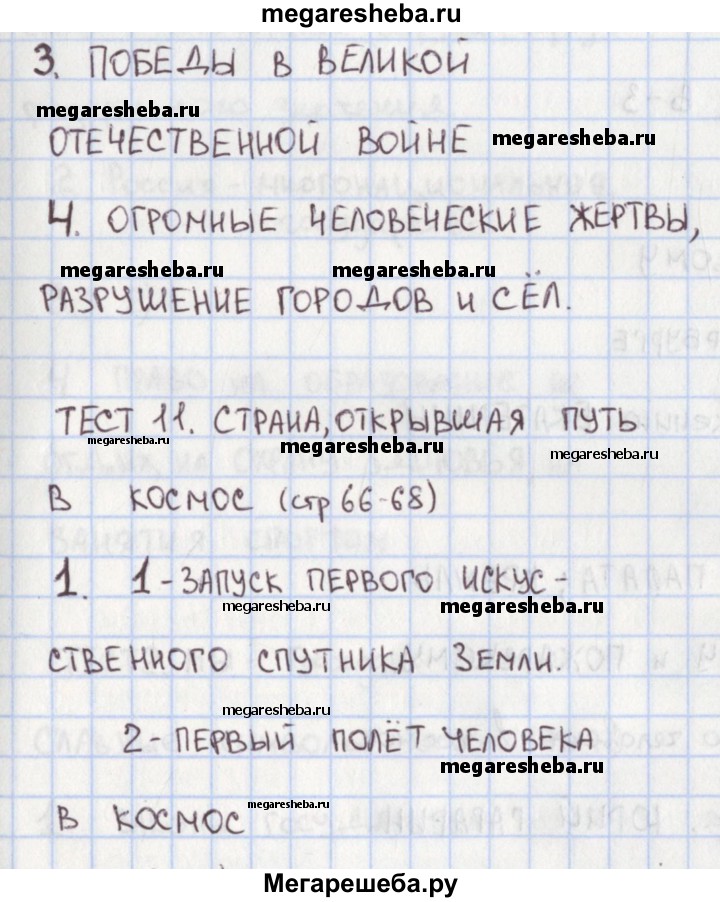 megaresheba.ru
3. ПОБЕДЫ В ВЕЛИКОЙ
megaresheba.ru
ОТЕЧЕСТВЕННОЙ ВОЙНЕ megaresheba.ru
4. ОГРОМНЫЕ ЧЕЛОВЕЧЕСКИЕ ЖЕРТВЫ,
megaresheba.ru megaresheba.ru
РАЗРУШЕНИЕ ГОРОДОВ И СЁЛ.
ТЕСТ 11. СТРАНА, ОТКРЫВШАЯ ПУТЬ
megaresheba.ru megaresheba.ru megaresheba.ru
В КОСМОС (стр 66-68)
1. 1-ЗАПУСК ПЕРВОГО ИСКУС-
megaresheba.ru megaresheba.ru
СТВЕННОГО СПУТНИКА ЗЕМЛИ.
megaresheba.ru
2-ПЕРВЫЙ ПОЛЁТ ЧЕЛОВЕКА
megaresheba.ru
В КОСМОС megaresheba.ru megaresheba.ru
Мегарешеба.ру